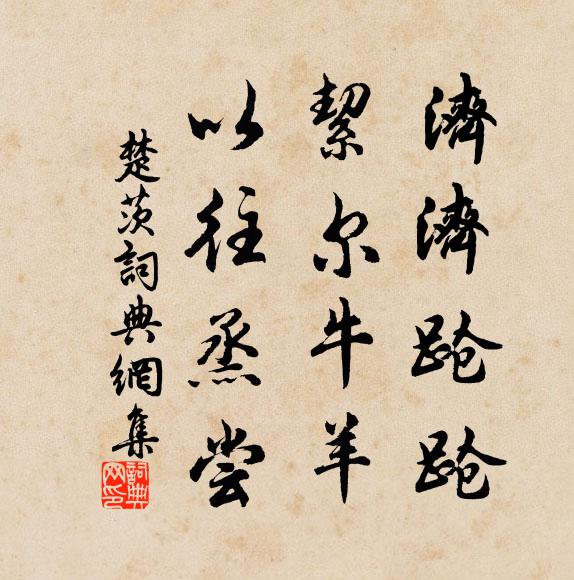 濟濟蹌蹌
絜尔牛羊
以往烝尝
楚茨詞典網集
詞典网印